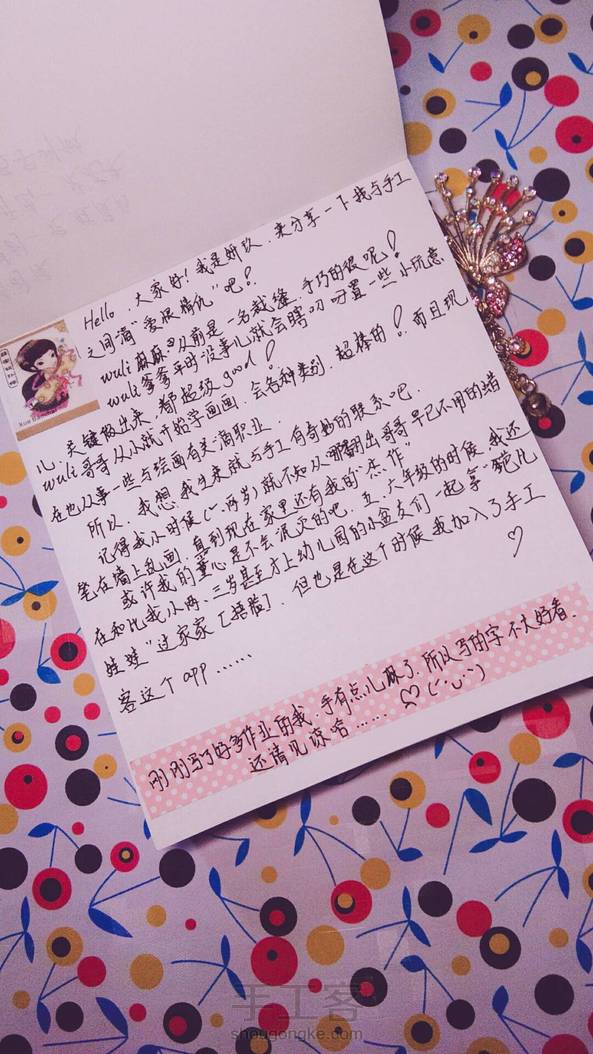 Hello，大家好！我是妍玖，来分享一下我与手工
之间滴“爱恨情仇”吧！
wuli麻麻从前是一名裁缝，手巧的很呢！
wuli爹爹平时没事儿就会瞎叨叨置一些小玩意
儿，关键做出来，都超级good！
wuli哥哥从小就开始学画画，会各种类别，超棒的！而且现
在也从事一些与绘画有关滴职业．
所以，我想，我生来就与手工有奇妙的联系吧．
记得我小时候（一两岁）就不知从哪翻出哥哥早已不用的蜡
笔在墙上乱画，直到现在家里还有我的“杰作”
或许我的童心是不会泯灭的吧，五、六年级的时候，我还
在和比我小两、三岁甚至才上幼儿园的小盆友们一起拿“靶儿
娃娃”过家家［捂脸］．但也是在这个时候我加入了手工
客这个app……
刚刚写了好多作业的我，手有点儿麻了，所以写的字不太好看．
还请见谅哈……♡(´･ᴗ･`)
手工客
shougongke.com